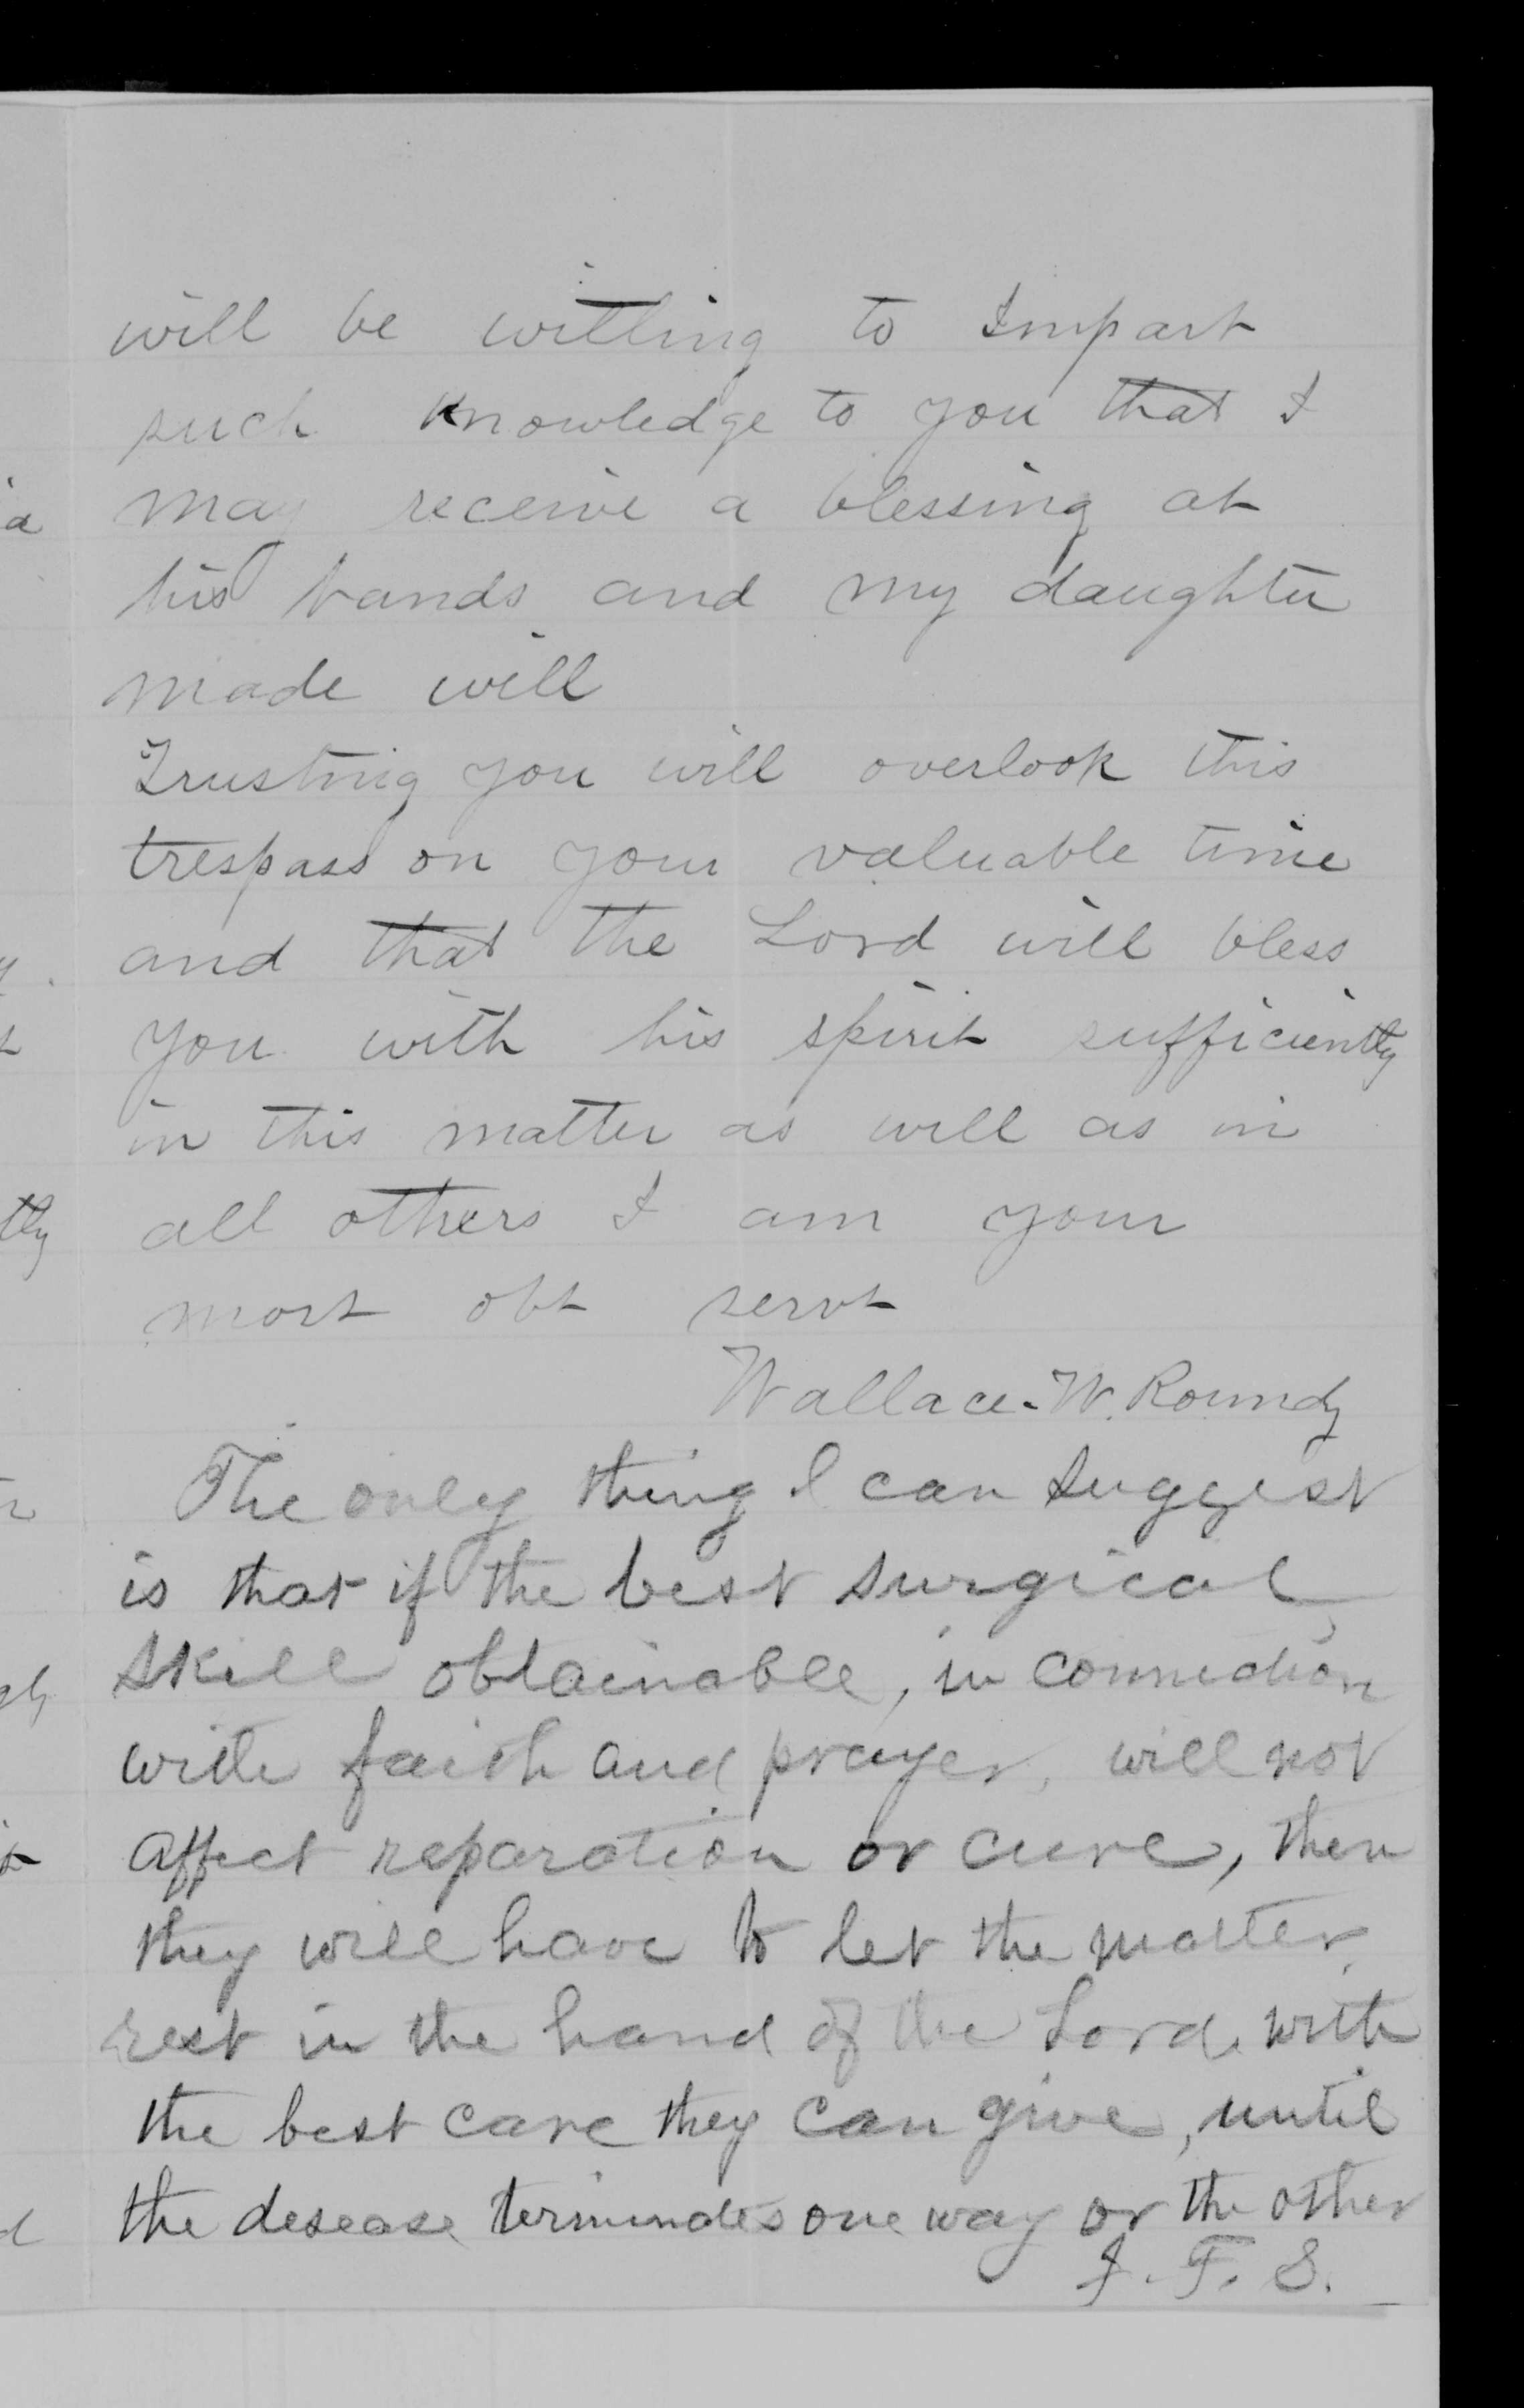 will be willing to Impart
such Knowledge to you that I
may receive a blessing at
his hands and my daughter
made will
Trusting you will overlook this
trespass on your valuable time
and that the Lord will bless
you with his spirit sufficiently
in this matter as will as in
all others I am your
most obt servt
Wallace. W. Roundy
The only thing I can suggest
is that if the best surgical
skill obtainable, in connection
with faith and prayer, will not
affect reparation or cure, then
they will have to let the matter
rest in the hand of the Lord, with
the best care they can give, until
the desease terminates one way or the other
J. F. S.